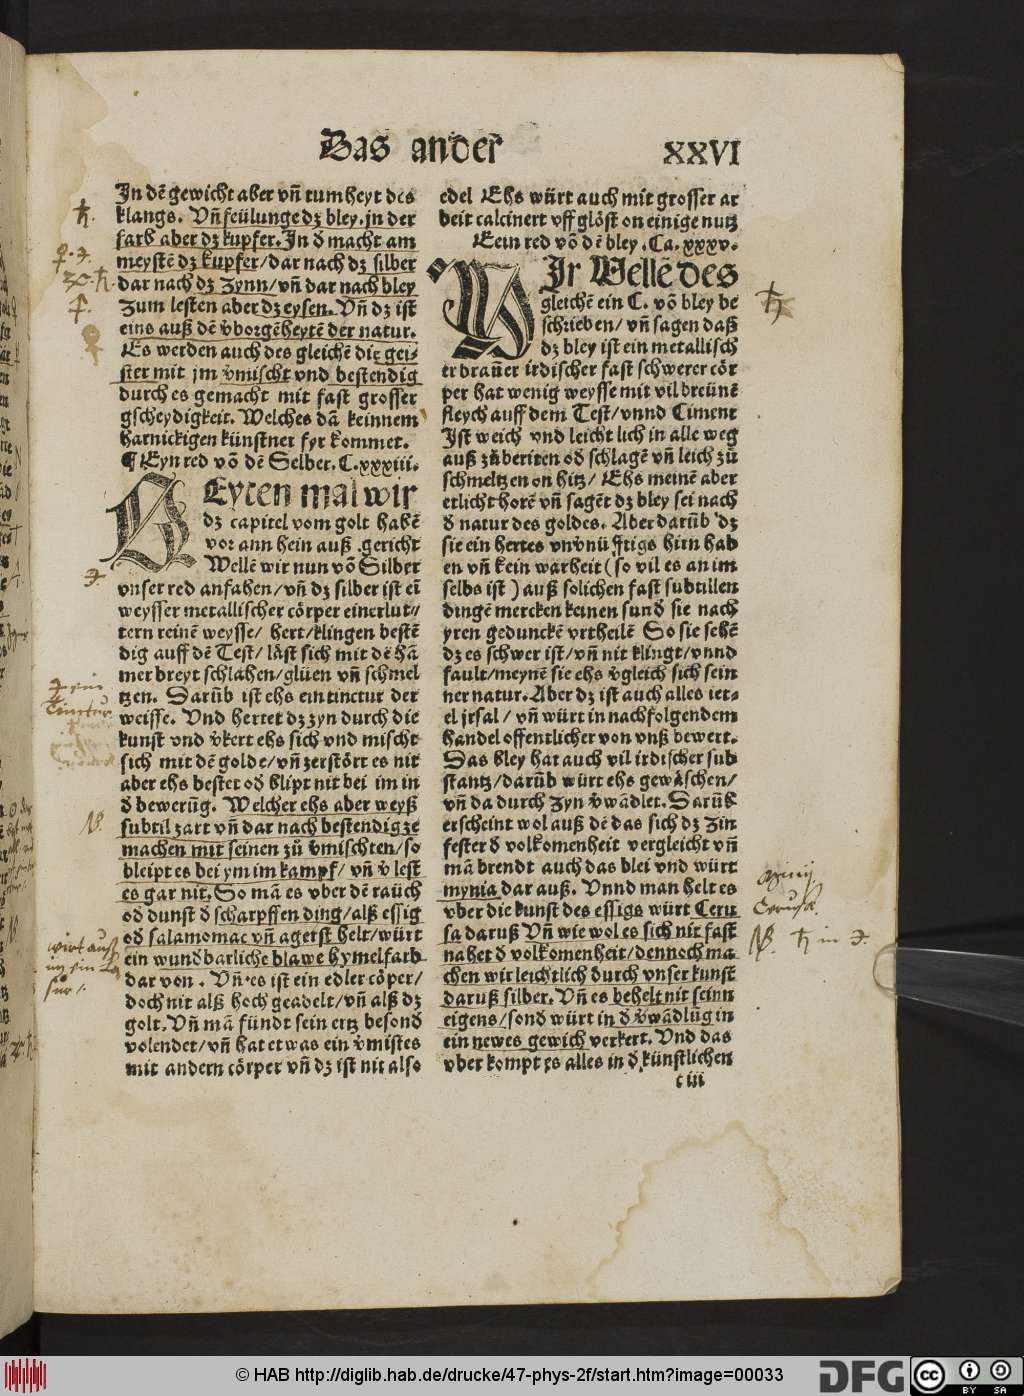 Das ander
XXVI
In dē gewicht aber vñ tumheyt des
klangs. Vñ feülunge dz bley. jn der
farb aber dz kupfer. In d macht am
meystē dz kupfer/dar nach dz silber
dar nach dz zynn/vñ dar nach bley
zum lesten aber dz eysen. Vñ dz ist
eins auß dē v̄borgēheytē der natur.
Es werden auch des gleichē die gei-
ster mit jm v̄mischt vnd bestendig
durch es gemacht mit fast grosser
gscheydigkeit. Welches dā keinnem
harnickigen künstner fyr kommet.
¶ Eyn red vō dē Selber. C. xxxiii.
Eyten mal wir
dz capitel vom golt habē
vor ann hein auß .gericht
Wellē wir nun vō Silber
vnser red anfahen/vñ dz silber ist eī
weysser metallischer cörper einerlut//
tern reinē weysse/ hert/klingen bestē
dig auff dē Test/ läst sich mit dē hā
mer breyt schlahen/glüen vñ schmel
tzen. Darūb ist ehs ein tinctur der
weisse. Vnd hertet dz zyn durch die
kunst vnd v̄kert ehs sich vnd mischt
sich mit dē golde/vñ zerstört es nit
aber ehs bestet od blipt nit bei im in
d bewerūg. Welcher ehs aber weyß
subtil zart vñ dar nach bestendig ze
machen mit seinen zū v̄mischten/so
bleipt es bei ym im kampf/ vñ v̄lest
es gar nit. So mā es vber dē rauch
od dunst d scharpffen ding/alß essig
od salamoniac vñ agerst helt/würt
ein wundbarliche blawe hymelfarb
dar von . Vñ es ist ein edler cöper/
doch nit alß hoch geadelt/vñ alß dz
golt. Vñ mā fündt sein ertz besond
volendet/vñ hat etwas ein v̄mistes
mit andern cörper vñ dz ist nit also
edel Ehs würt auch mit grosser ar
beit calcinert vff glöst on einige nutz
Eein red vō dē bley. Ca. xxxv.
WJr Wellē des
gleichē ein C. vō bley be
schrieben/ vñ sagen daß
dz bley ist ein metallisch
er brauner irdischer fast schwerer cör
per hat wenig weysse mit vil breünē
fleych auff dem Test/vnnd Ciment
Jst weich vnd leicht lich in alle weg
auß zůberiten od schlagē vñ leich zū
schmeltzen on hitz/ Ehs meinē aber
etlicht horē vñ sagēt dz bley sei nach
d natur des goldes. Aber darūb dz
sie ein hertes vnvnünfftigs hirn hab
en vñ kein warheit (so vil es an im
selbs ist) auß solichen fast subtillen
dingē mercken keinen sund sie nach
yren gedunckē vrtheilē So sie sehē
dz es schwer ist/vñ nit klingt/vnnd
fault/meynē sie ehs v̄gleich sich sein
ner natur. Aber dz ist auch alles iet=
el jrsal / vñ würt in nachfolgendem
handel offentlicher von vnß bewert.
Das bley hat auch vil irdischer sub
stantz/darūb würt ehs gewäschen/
vñ da durch zyn v̄wādlet. Darūb
erscheint wol auß dē das sich dz zin
fester d volkomenheit vergleicht vñ
mā brendt auch das blei vnd würt
mynia dar auß. Vnnd man helt es
vber die kunst des essigs würt Ceru
sa daruß Vñ wie wol es sich nit fast
nahet d volkomenheit/dennoch ma
chen wir leichtlich durch vnser kunst
daruß silber. Vñ es behelt nit seinn
eigens/sond würt in d v̄wādlūg in
ein newes gewich verkert. Vnd das
vber kompt es alles in d künstlichen
c iii
Tinctur
wirt auß
© HAB http://diglib.hab.de/drucke/47-phys-2f/start.htm?image=00033
DFG
cc
BY SA